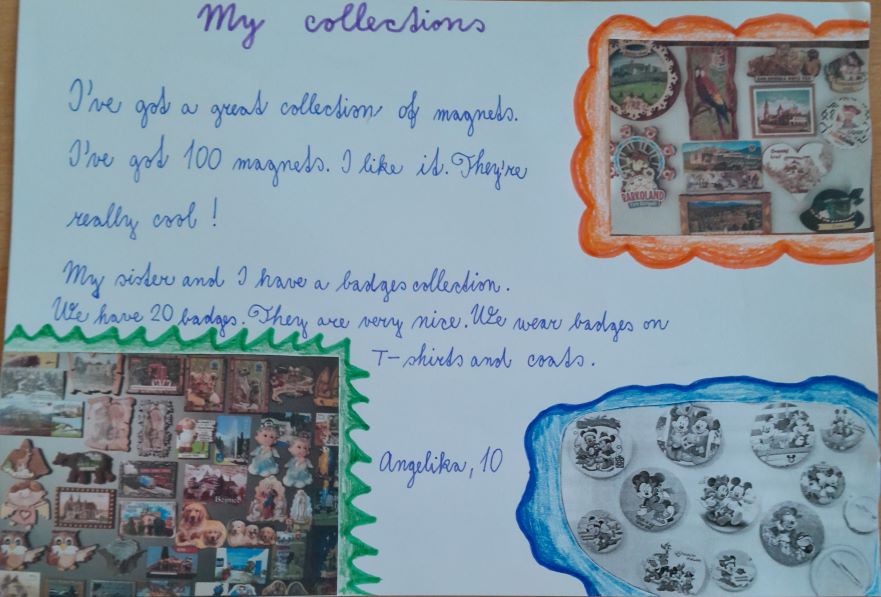 My collections
I've got a great collection of magnets.
I've got 100 magnets. I like it. They're
really cool!
My sister and I have a badges collection.
We have 20 badges. They are very nice. We wear badges on
T-shirts and coats.
Angelika, 10
PARKOLAND